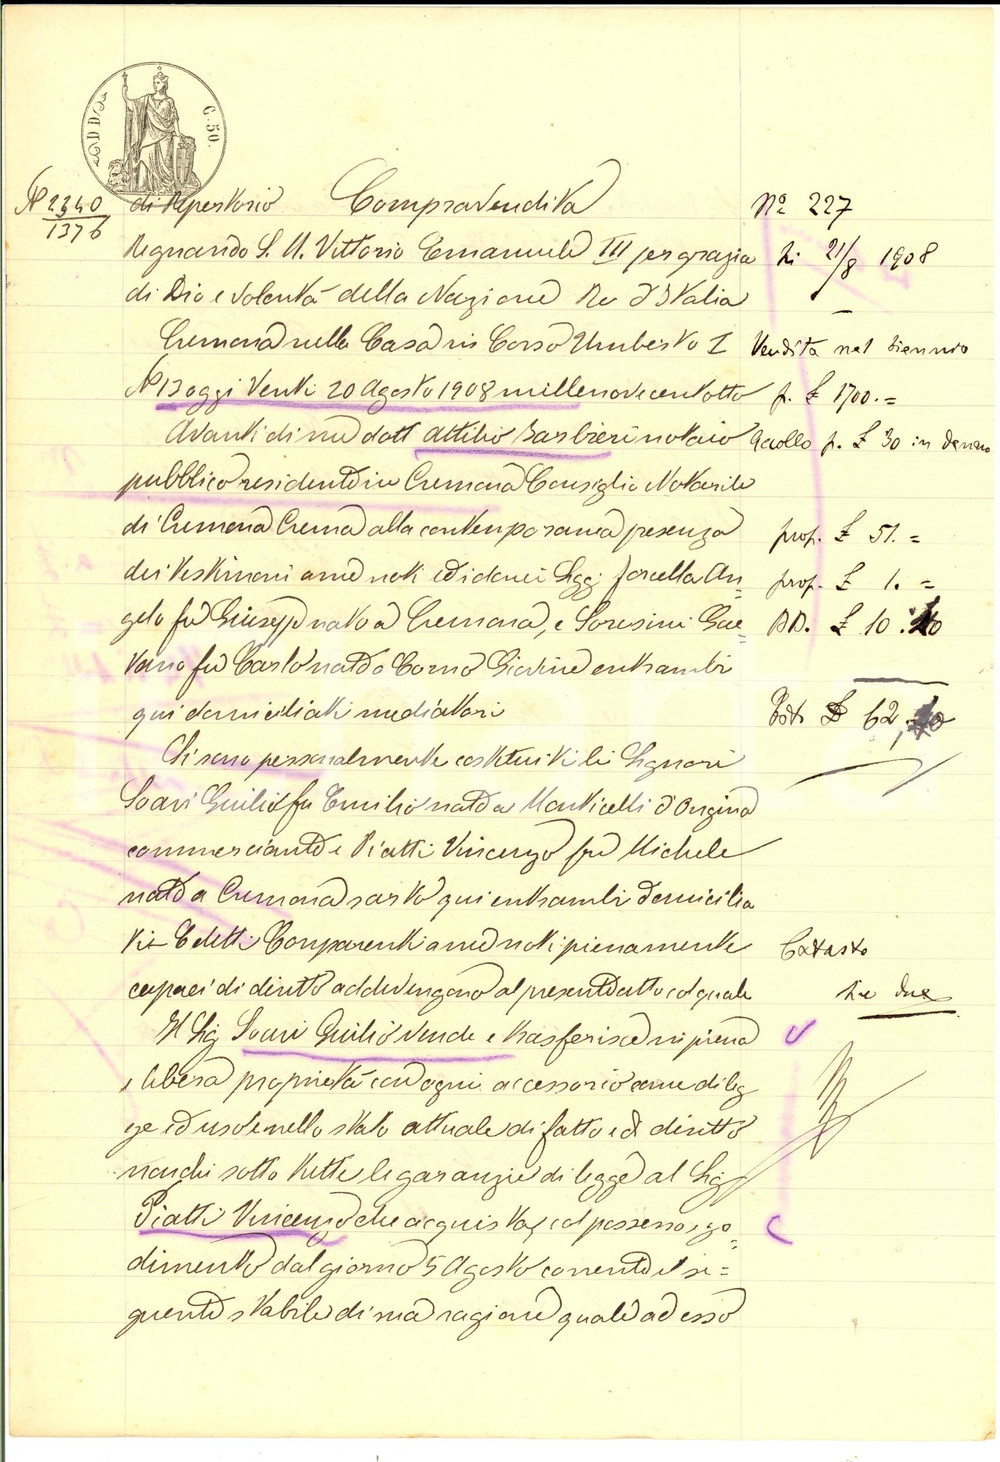 C. 50.
N 2340 di Repertorio Compravendita
1376
Regnando S. M. Vittorio Emanuele III per grazia
di Dio e volontà della Nazione Re d'Italia
Cremona nella Casa in Corso Umberto I
N 13 oggi Venti 20 Agosto 1908 millenovecentotto
Avanti di me dott Attilio Barbieri notaio
pubblico residente in Cremona Consiglio Notarile
di Cremona Crema alla contemporanea presenza
dei testimoni a me noti ed idonei Sigg. Forcella An=
gelo fu Giuseppe nato a Cremona, e Soresini Gae=
tano fu Carlo nato a Corno Giovine entrambi
qui domiciliati mediatori
Si sono personalmente costituiti li Signori
Soavi Giulio fu Emilio nato a Monticelli d'Ongina
commerciante e Piatti Vincenzo fu Michele
nato a Cremona sarto qui entrambi domicilia
ti E detti Comparenti a me noti pienamente
capaci di diritto addivengono al presente atto col quale
Il Sig Soavi Giulio vende e trasferisce in piena
e libera proprietà con ogni accessorio come di leg
ge ed uso e nello stato attuale di fatto e di diritto
nonchè sotto tutte le garanzie di legge al Sig
Piatti Vincenzo che acquista, col possesso, go=
dimento dal giorno 5 Agosto corrente il se=
guente stabile di sua ragione quale ad esso
No 227
li 21/8 1908
Vendita nel biennio
p. £ 1700.=
Accollo p. £ 30 in denaro
prop. £ 51. =
prop. £ 1. =
DD. £ 10.
Tot £ 62,
Catasto
lire due